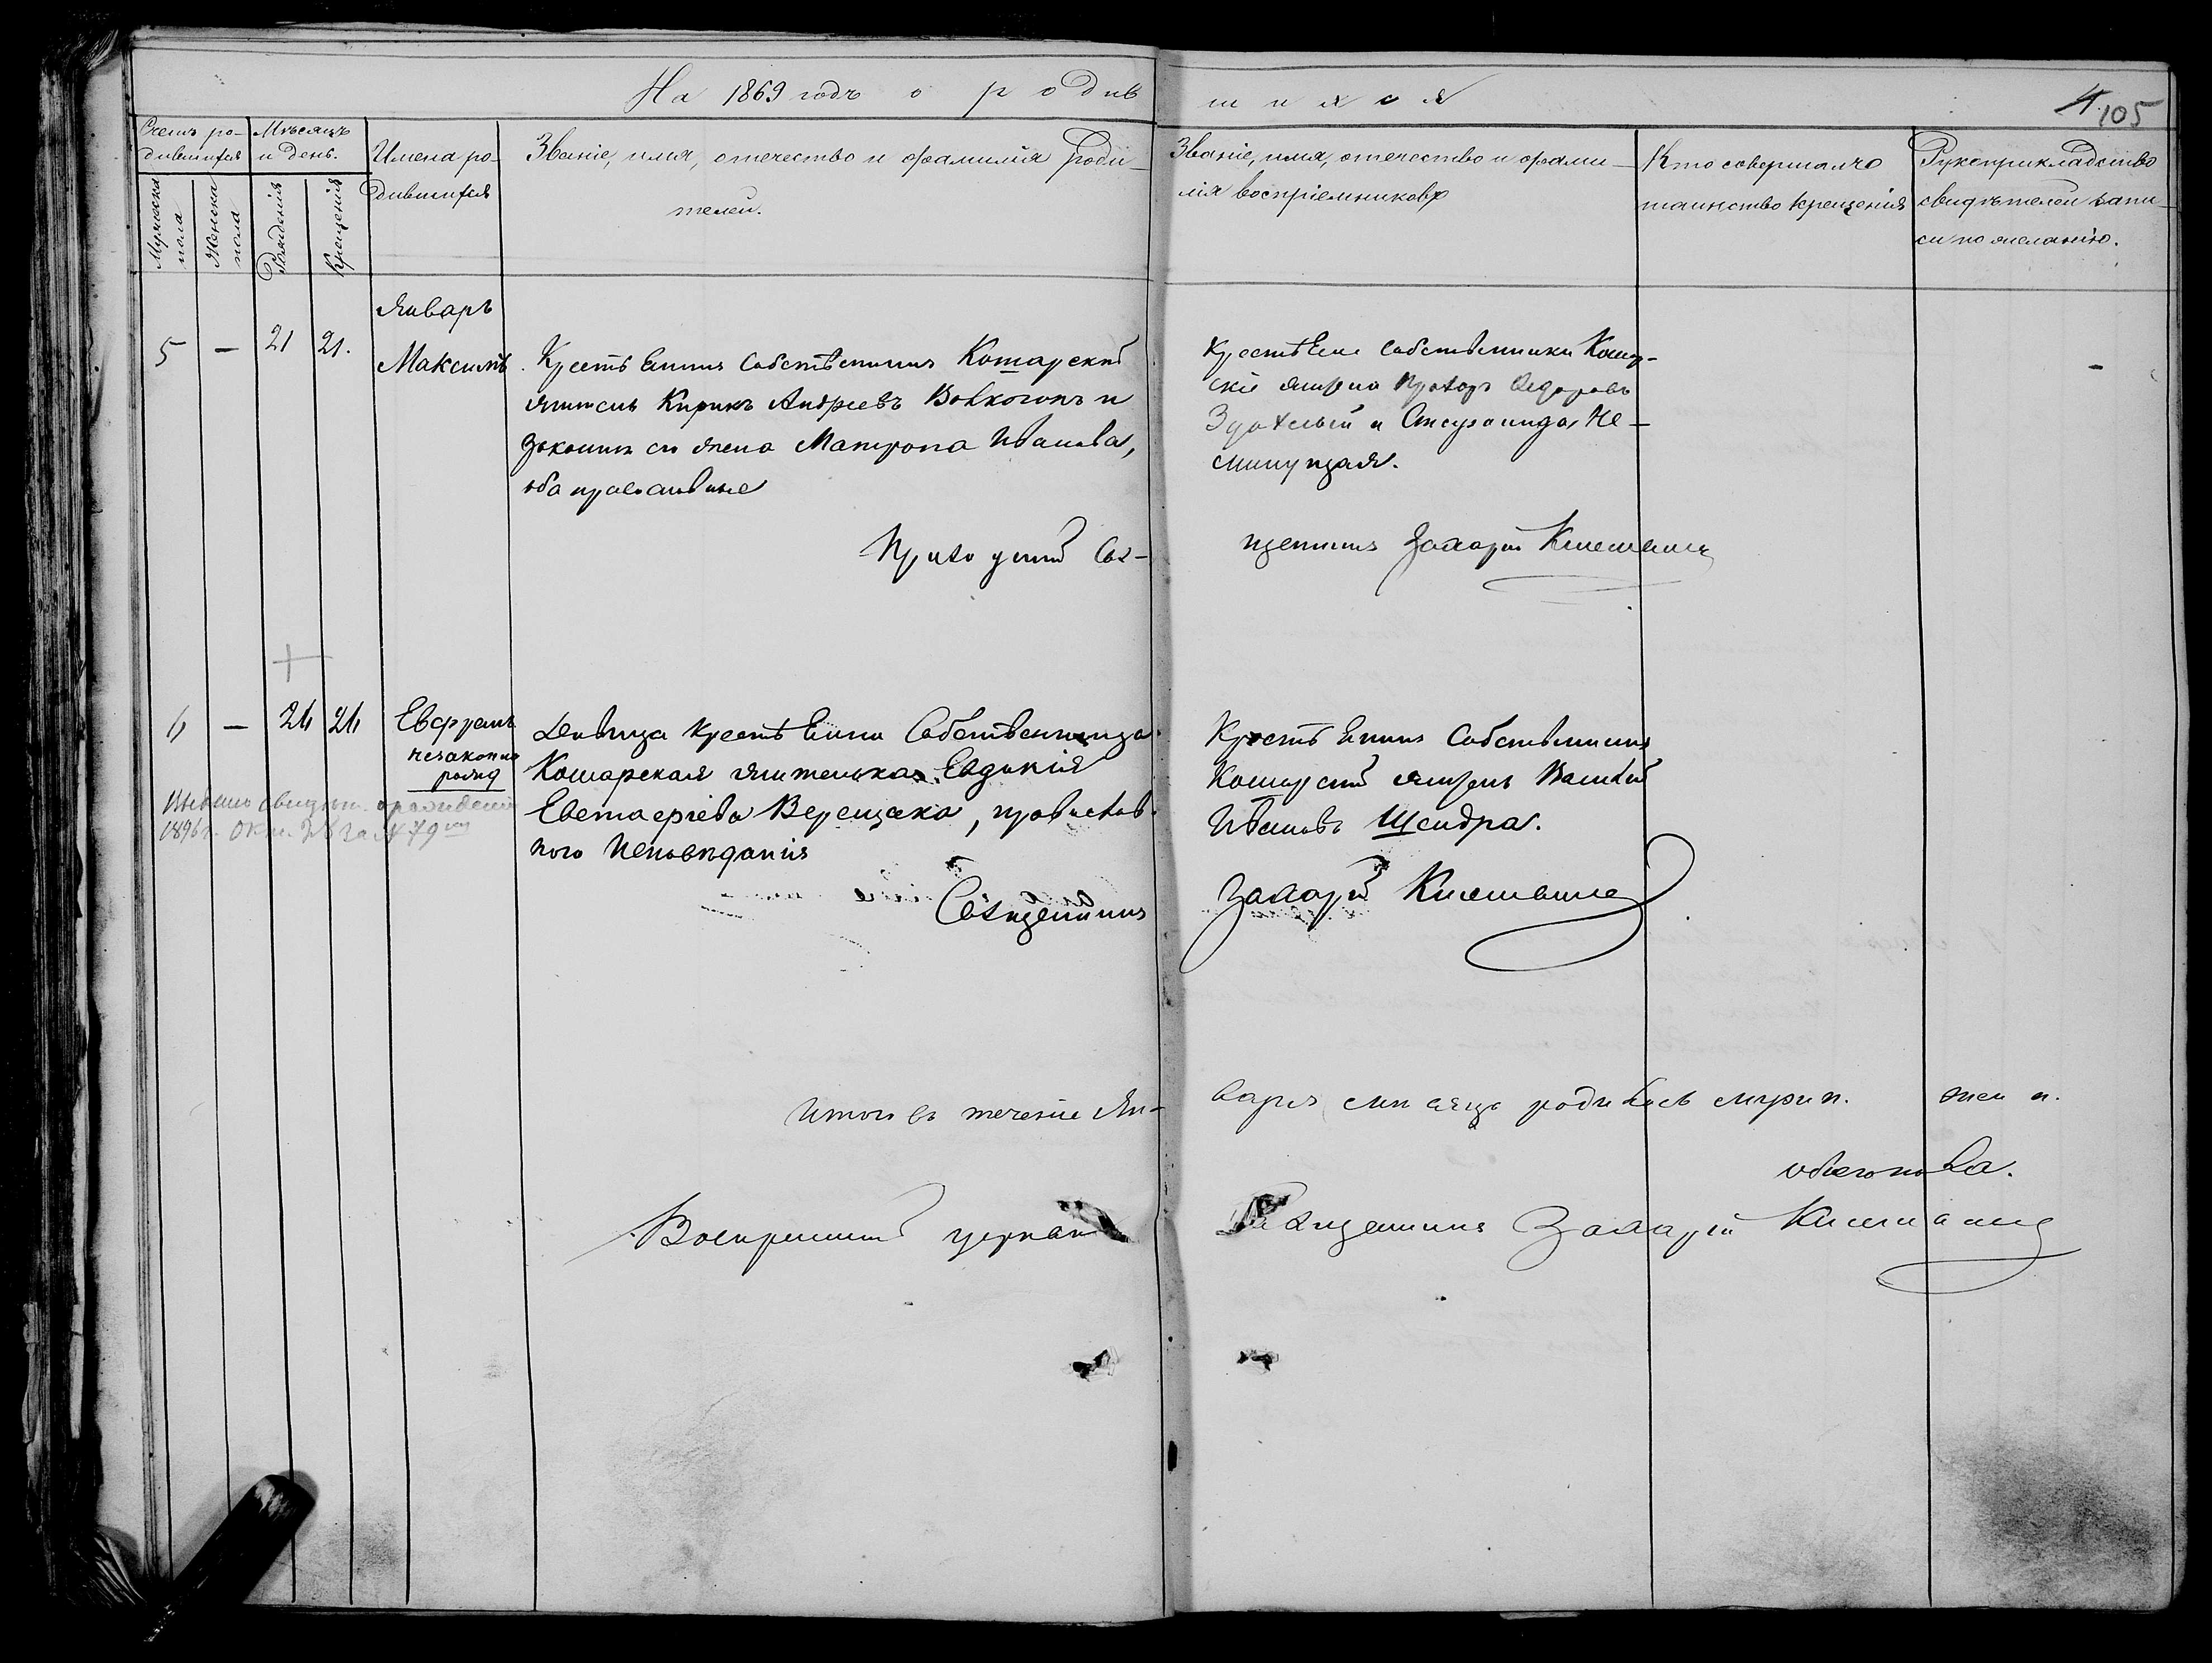 На 1869 годъ о родив
шихся
4 105
Счетъ ро-
дившихся
Мужеска
пола
Женска
пола
Мѣсяцъ
и День.
Рожденія
Крещенія
Имена ро-
дившихся
Званіе, имя, отечество и фамилія роди-
телей.
Званіе, имя, отечество и фами-
лія воспріемниковъ
Кто совершалъ
таинство крещенія
Рукоприкладство
свидѣтелей запи-
си по желанію.
Январь
5 — 21 21. Максимъ
Крестьянинъ Собственникъ Кошарскій
житель Кирикъ Андреевъ Вовкогонъ и
законная его жена Матрона Иванова,
оба православные
Крестьяне собственники Кошар-
скіе жители Прохоръ Федоровъ
и Не-
минущая.
-
Приходскій Свя-
щенникъ Захарій
6 — 24 24 Евфремъ
незаконно
рожд
Дѣвица крестьянка Собственница
Кошарская жителька Евдокія
Евстафіева Верещака, православ-
ного исповѣданія
Крестьянинъ Собственникъ
Кошарскій житель Василій
Ивановъ Щендра.
Выдано свидѣт. о рожденіи
1896 г. Окт. за № 79
Священникъ
Захарій
Итого въ теченіе Ян-
варя мѣсяца родилось муж п. жен п.
обоего пола.
Воскресенской церкви
Священникъ Захарій